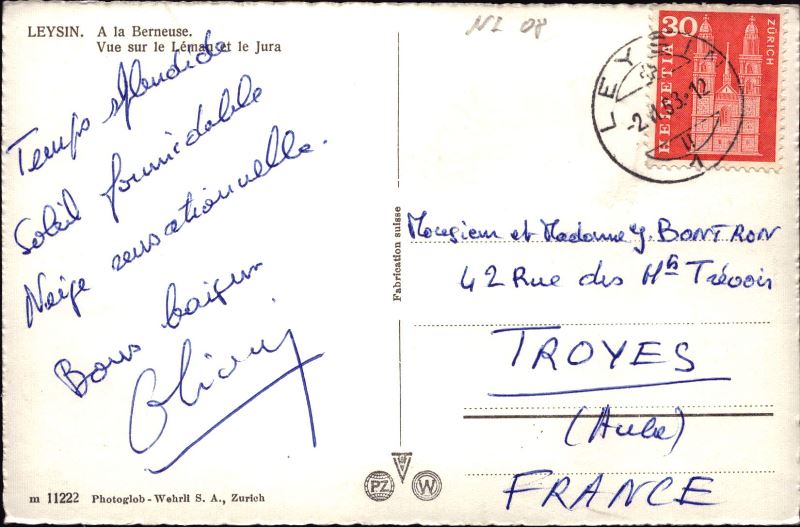 LEYSIN. A la Berneuse.
Vue sur le Léman et le Jura
Temps splendide
Soleil formidable
Neige sensationnelle.
Bons baisers
m 11222 Photoglob-Wehrli S. A., Zurich
Fabrication suisse
PZ W
30
HELVETIA
ZÜRICH
LEYSIN
63-12
1
Monsieur et Madame J. BONTRON
42 Rue des Hts Trévois
TROYES
(Aube)
FRANCE